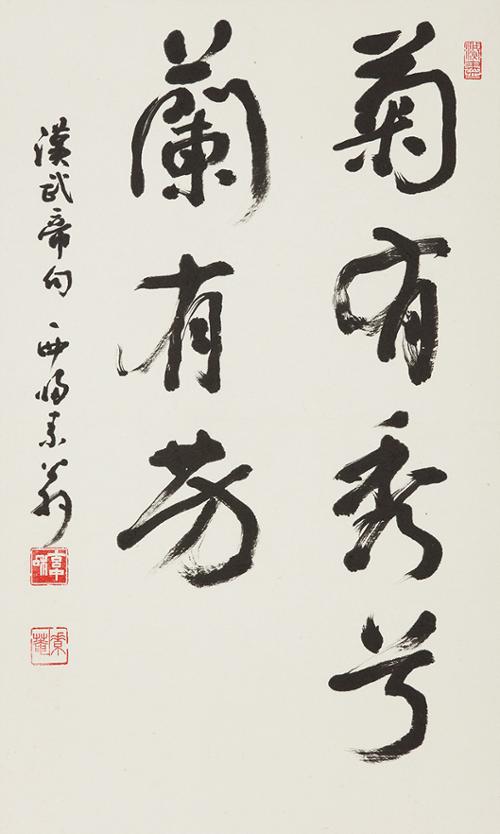 菊有秀兮
蘭有芳
漢武帝句 素翁